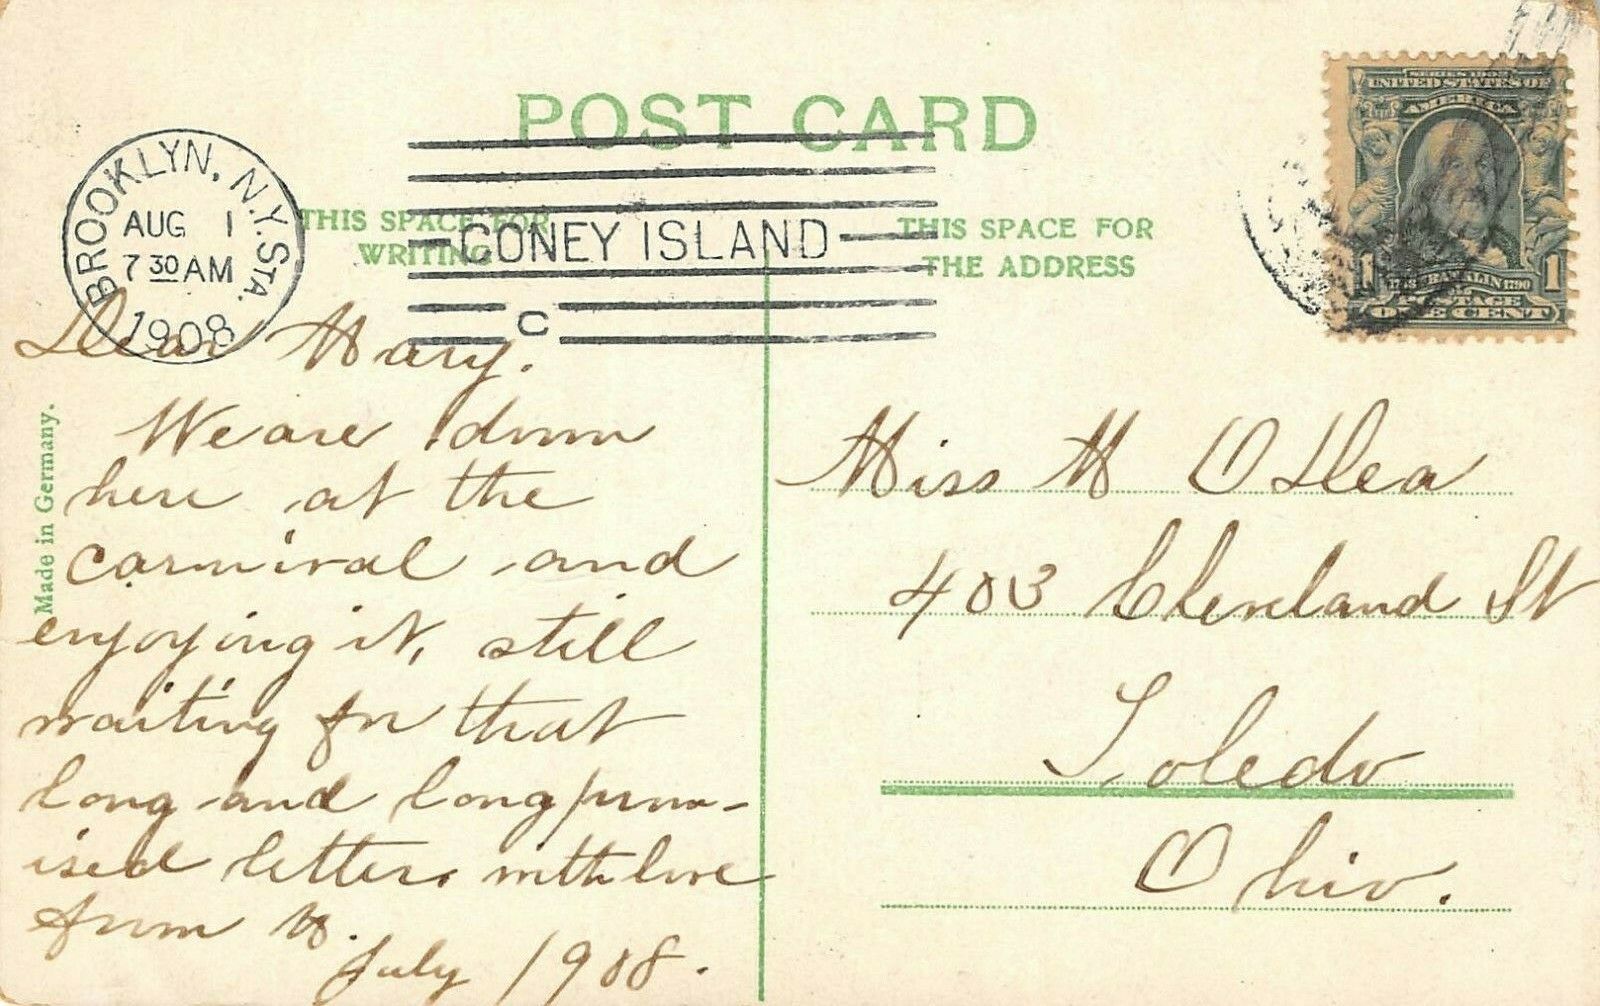 POST CARD
BROOKLYN, N.Y. STA.
AUG 1
7 30 AM
1908
CONEY ISLAND
C
THIS SPACE FOR
WRITING
THIS SPACE FOR
THE ADDRESS
SERIES 1902
UNITED STATES OF
AMERICA
1 FRANKLIN 1790 1
POSTAGE
ONE CENT
Made in Germany.
Dear Mary.
We are down
here at the
carnival and
enjoying it, still
waiting for that
long and long prom-
ised letter. with love
from M.
July 1908.
Miss M O'Dea
403 Cleveland St
Toledo
Ohio.